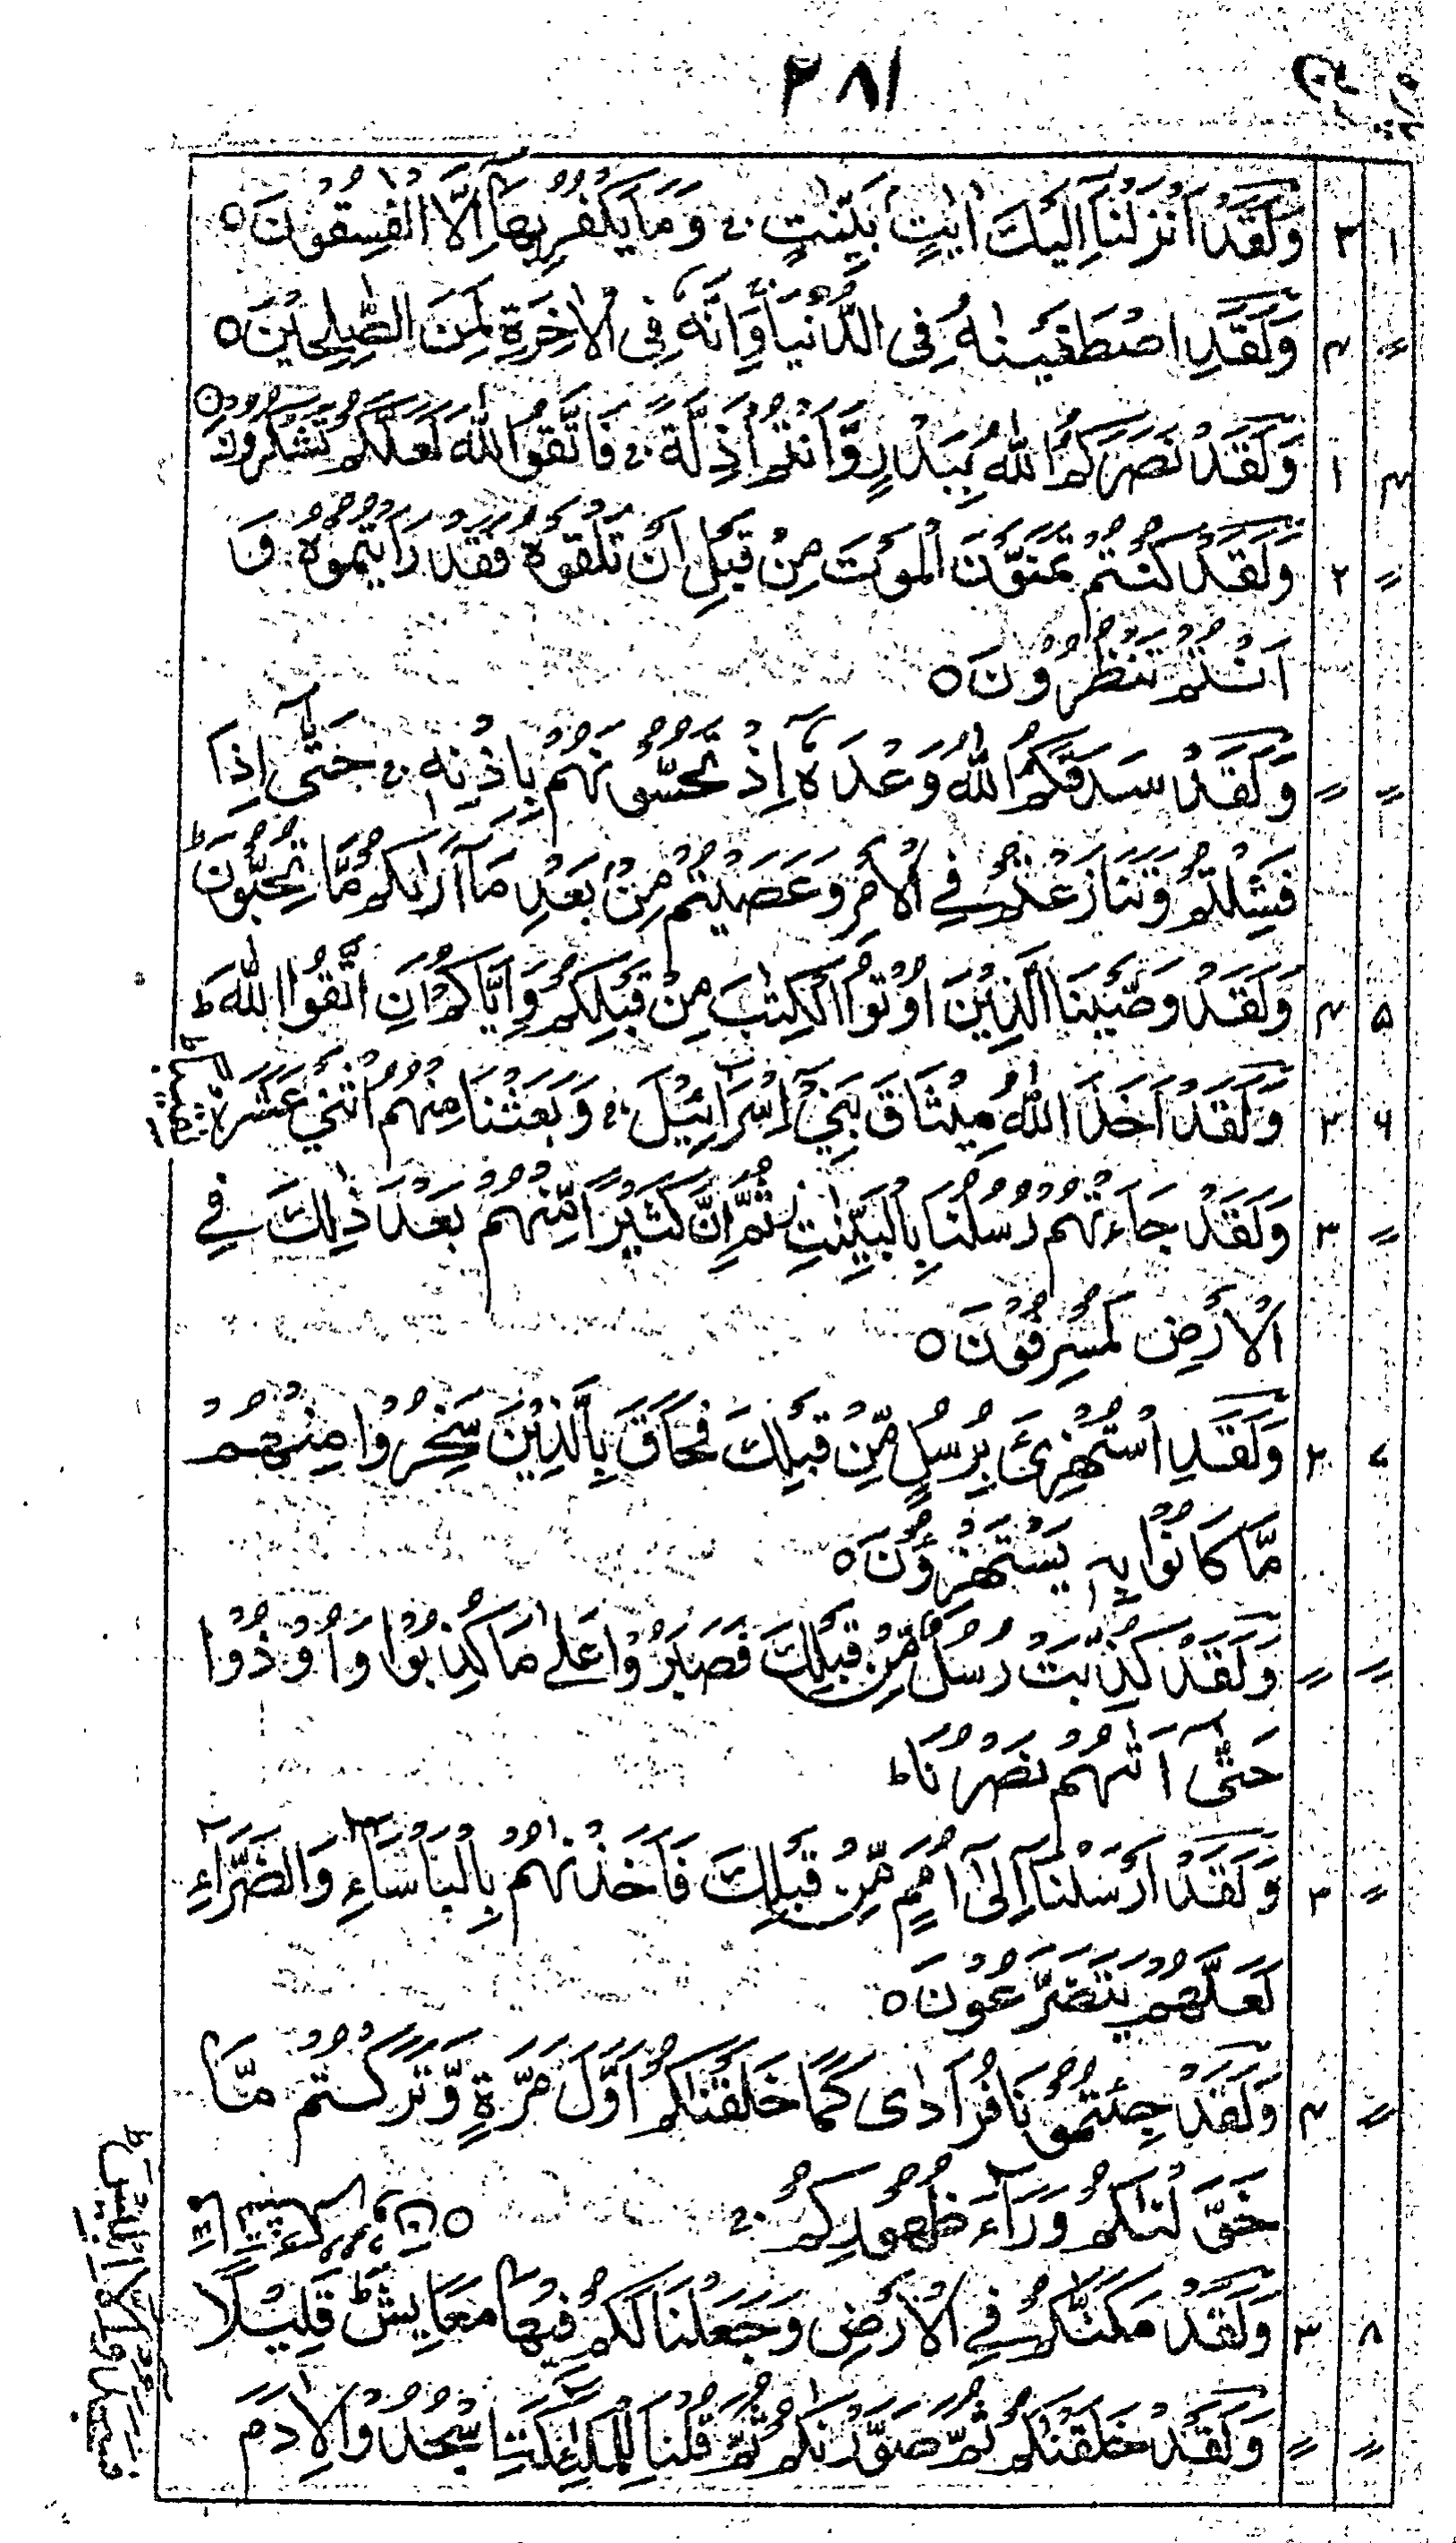 ۲۸۱
۱ ۳ وَلَقَدْ اَنْزَلْنَاۤ اِلَيْكَ اٰيٰتٍۭ بَيِّنٰتٍ ۚ وَمَا يَكْفُرُ بِهَاۤ اِلَّا الْفٰسِقُوْنَ ○
〃 ۴ وَلَقَدِ اصْطَفَيْنٰهُ فِى الدُّنْيَا ۚ وَاِنَّهٗ فِى الْاٰخِرَةِ لَمِنَ الصّٰلِحِيْنَ ○
۴ ۱ وَلَقَدْ نَصَرَكُمُ اللّٰهُ بِبَدْرٍ وَّاَنْتُمْ اَذِلَّةٌ ۚ فَاتَّقُوا اللّٰهَ لَعَلَّكُمْ تَشْكُرُوْنَ ○
〃 ۲ وَلَقَدْ كُنْتُمْ تَمَنَّوْنَ الْمَوْتَ مِنْ قَبْلِ اَنْ تَلْقَوْهُ فَقَدْ رَاَيْتُمُوْهُ وَ
اَنْتُمْ تَنْظُرُوْنَ ○
〃 〃 وَلَقَدْ صَدَقَكُمُ اللّٰهُ وَعْدَهٗۤ اِذْ تَحُسُّوْنَهُمْ بِاِذْنِهٖ ۚ حَتّٰۤى اِذَا
فَشِلْتُمْ وَتَنَازَعْتُمْ فِى الْاَمْرِ وَعَصَيْتُمْ مِنْۢ بَعْدِ مَاۤ اَرٰىكُمْ مَّا تُحِبُّوْنَ ؕ
۵ ۴ وَلَقَدْ وَصَّيْنَا الَّذِيْنَ اُوْتُوا الْكِتٰبَ مِنْ قَبْلِكُمْ وَاِيَّاكُمْ اَنِ اتَّقُوا اللّٰهَ ؕ
۶ ۲ وَلَقَدْ اَخَذَ اللّٰهُ مِيْثَاقَ بَنِىْۤ اِسْرَآءِيْلَ ۚ وَبَعَثْنَا مِنْهُمُ اثْنَىْ عَشَرَ نَقِيْبًا ؕ
〃 ۳ وَلَقَدْ جَآءَتْهُمْ رُسُلُنَا بِالْبَيِّنٰتِ ثُمَّ اِنَّ كَثِيْرًا مِّنْهُمْ بَعْدَ ذٰلِكَ فِى
الْاَرْضِ لَمُسْرِفُوْنَ ○
۷ ۲ وَلَقَدِ اسْتُهْزِئَ بِرُسُلٍ مِّنْ قَبْلِكَ فَحَاقَ بِالَّذِيْنَ سَخِرُوْا مِنْهُمْ
مَّا كَانُوْا بِهٖ يَسْتَهْزِءُوْنَ ○
〃 〃 وَلَقَدْ كُذِّبَتْ رُسُلٌ مِّنْ قَبْلِكَ فَصَبَرُوْا عَلٰى مَا كُذِّبُوْا وَاُوْذُوْا
حَتّٰۤى اَتٰىهُمْ نَصْرُنَا ؕ
〃 ۳ وَلَقَدْ اَرْسَلْنَاۤ اِلٰۤى اُمَمٍ مِّنْ قَبْلِكَ فَاَخَذْنٰهُمْ بِالْبَاْسَآءِ وَالضَّرَّآءِ
لَعَلَّهُمْ يَتَضَرَّعُوْنَ ○
〃 ۴ وَلَقَدْ جِئْتُمُوْنَا فُرَادٰى كَمَا خَلَقْنٰكُمْ اَوَّلَ مَرَّةٍ وَّتَرَكْتُمْ مَّا
خَوَّلْنٰكُمْ وَرَآءَ ظُهُوْرِكُمْ ۚ ○
۸ ۳ وَلَقَدْ مَكَّنّٰكُمْ فِى الْاَرْضِ وَجَعَلْنَا لَكُمْ فِيْهَا مَعَايِشَ ؕ قَلِيْلًا
〃 〃 وَلَقَدْ خَلَقْنٰكُمْ ثُمَّ صَوَّرْنٰكُمْ ثُمَّ قُلْنَا لِلْمَلٰٓئِكَةِ اسْجُدُوْا لِاٰدَمَ
فَسَجَدُوْۤا اِلَّاۤ اِبْلِيْسَ ؕ